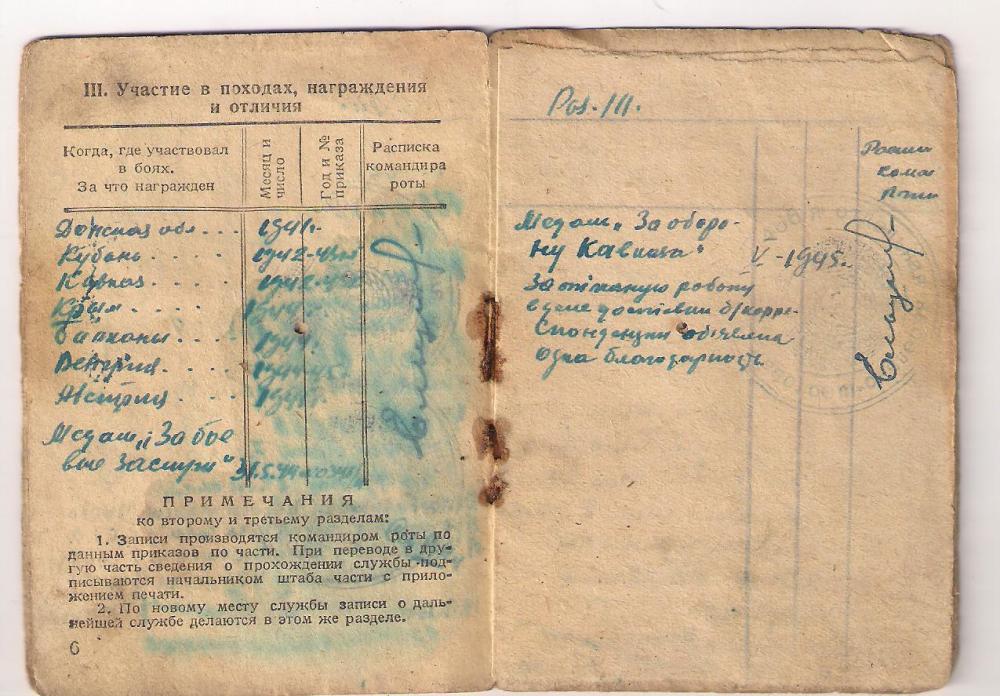 III. Участие в походах, награждения
и отличия
Когда, где участвовал
в боях.
За что награжден
Месяц и
число
Год и №
приказа
Расписка
командира
роты
Донская обл . . . 1941г.
Кубань . . . . 1942-43гг
Кавказ . . . . 1942-43г
Крым . . .
Балканы . . .
Венгрия . . .
Австрия . . .
Медаль „За бое
вые заслуги“ 31.5.44
ПРИМЕЧАНИЯ
ко второму и третьему разделам:
1. Записи производятся командиром роты по
данным приказов по части. При переводе в дру-
гую часть сведения о прохождении службы под-
писываются начальником штаба части с прило-
жением печати.
2. По новому месту службы записи о даль-
нейшей службе делаются в этом же разделе.
6
Раз. III.
Медаль „За оборо-
ну Кавказа“ V - 1945г.
За отличную работу
в деле доставки б/корре-
спонденции объявлена
одна благодарность